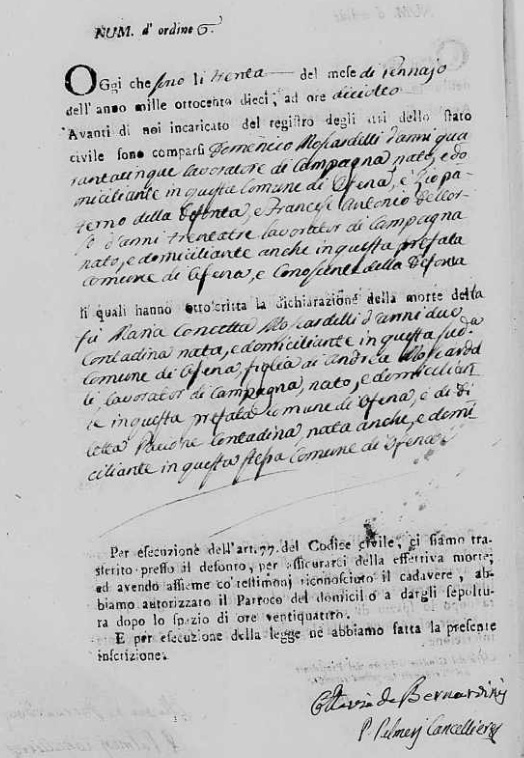 NUM. d' ordine 6.
OGgi che sono li trenta del mese di Gennajo
dell' anno mille ottocento dieci, ad ore dieciotto
Avanti di noi incaricato del registro degli atti dello stato
civile sono comparsi Domenico Moscardelli d'anni qua
rantacinque lavoratore di Campagna, nato, e do
miciliante in questa Comune di Ofena, e Zio pa
terno della Defonta, e Francesc' Antonio Dell'Or
so d'anni trentatre lavorator di Campagna
nato, e domiciliante anche in questa prefata
Comune di Ofena, e Conoscente della Defonta
li quali hanno sottoscritta la dichiarazione della morte della
fu Maria Concetta Moscardelli d'anni due
Contadina nata, e domiciliante in questa sud.a
Comune di Ofena, figlia di Andrea Moscardel
li, lavorator di Campagna, nato, e domicilian
te in questa prefata Comune di Ofena, e di
Pacione Contadina, nata anche, e domi
ciliante in questa stessa Comune di Ofena
Per esecuzione dell'art. 77. del Codice civile, ci siamo tra-
sferito presso il defonto, per assicurarci della effettiva morte;
ed avendo assieme co' testimonj riconosciuto il cadavere, ab-
biamo autorizzato il Parroco del domicilio a dargli sepoltu-
ra dopo lo spazio di ore ventiquattro.
E per esecuzione della legge ne abbiamo fatta la presente
inscrizione.
de Bernardinis
P. Palmerj Cancelliere